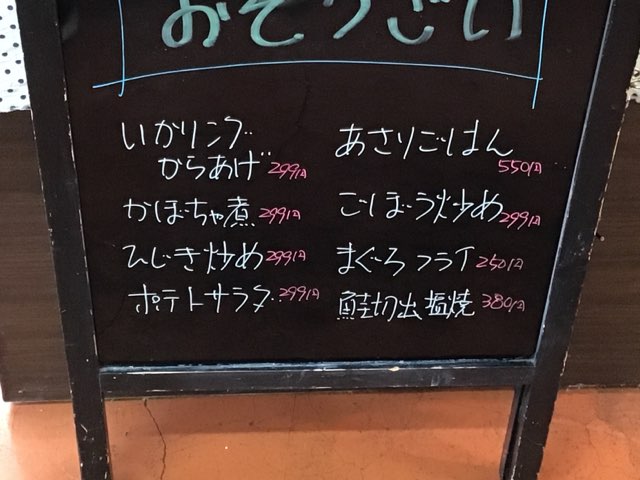 おそうざい
いかリング
からあげ 299円
かぼちゃ煮 299円
ひじき炒め 299円
ポテトサラダ 299円
あさりごはん
550円
ごぼう炒め 299円
まぐろフライ 250円
鮭切出塩焼 380円